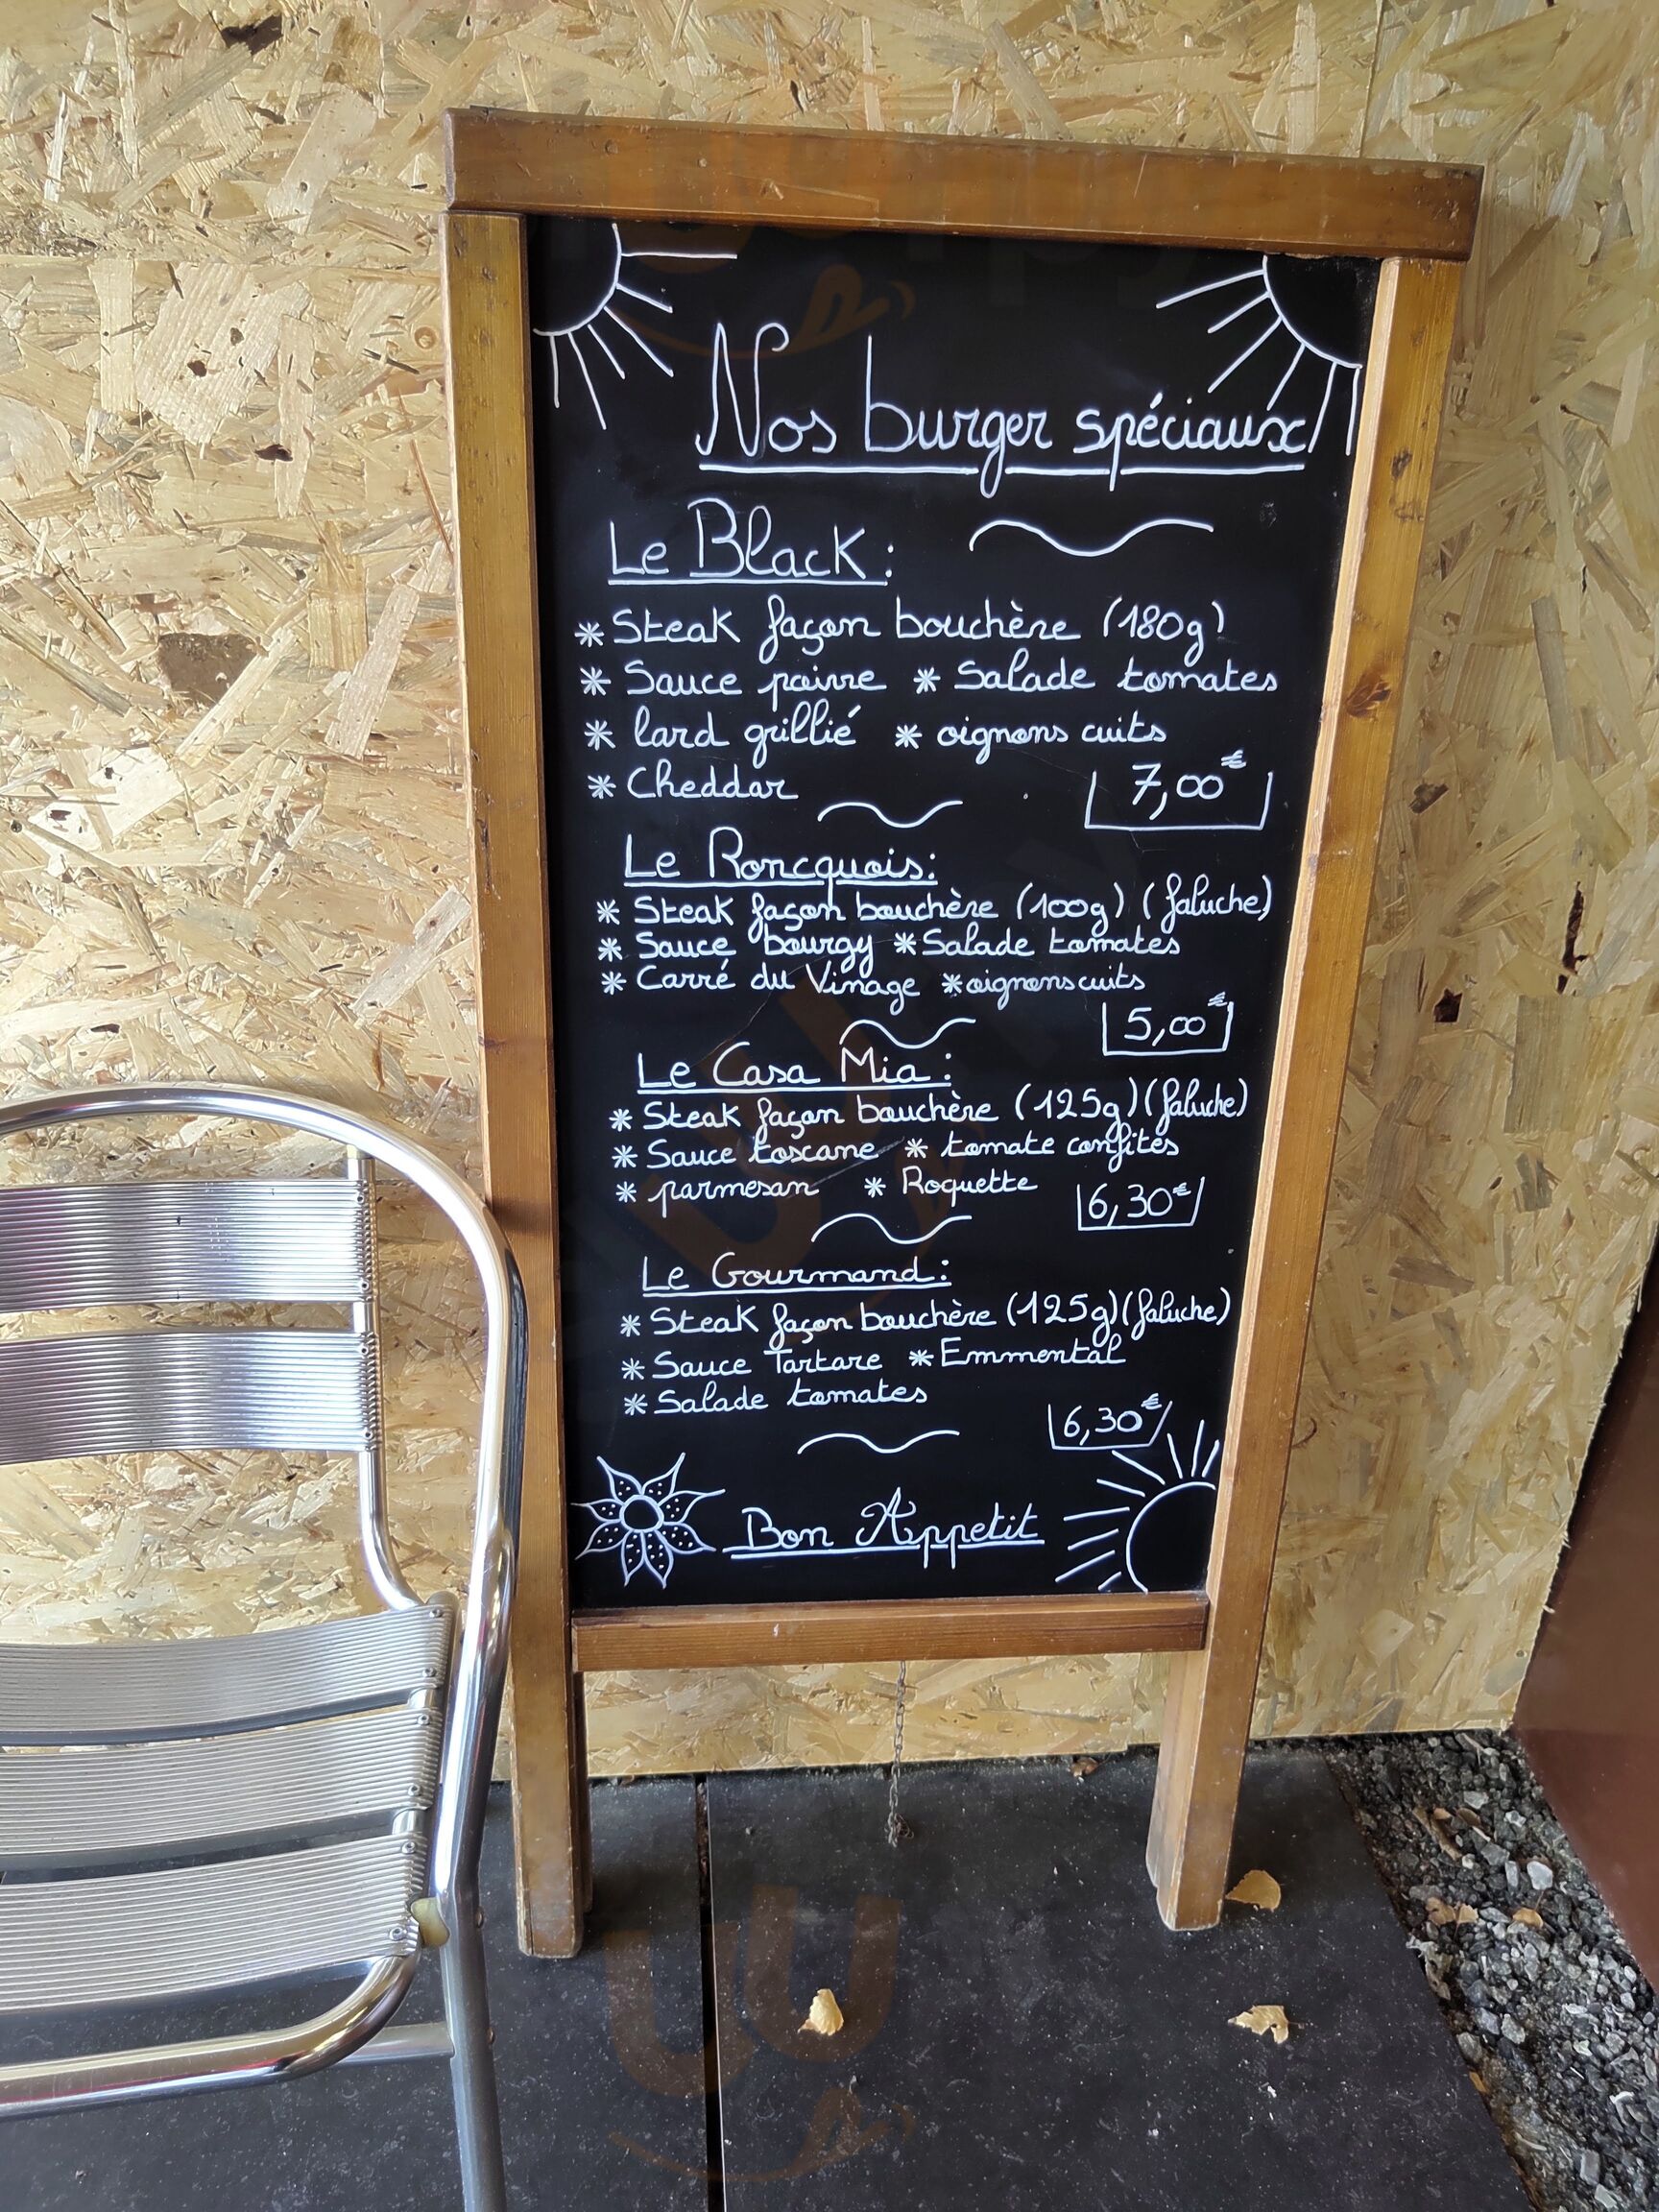 Nos burger spéciaux
Le Black :
* Steak façon bouchère (180g)
* Sauce poivre * Salade tomates
* lard grillié * oignons cuits
* Cheddar
7,00€
Le Roncquois :
* Steak façon bouchère (100g) (faluche)
* Sauce bourgy * Salade tomates
* Carré du Vinage * oignons cuits
5,00€
Le Casa Mia :
* Steak façon bouchère (125g) (faluche)
* Sauce toscane * tomate confites
* parmesan * Roquette
6,30€
Le Gourmand :
* Steak façon bouchère (125g) (faluche)
* Sauce Tartare * Emmental
* Salade tomates
6,30€
Bon Appetit